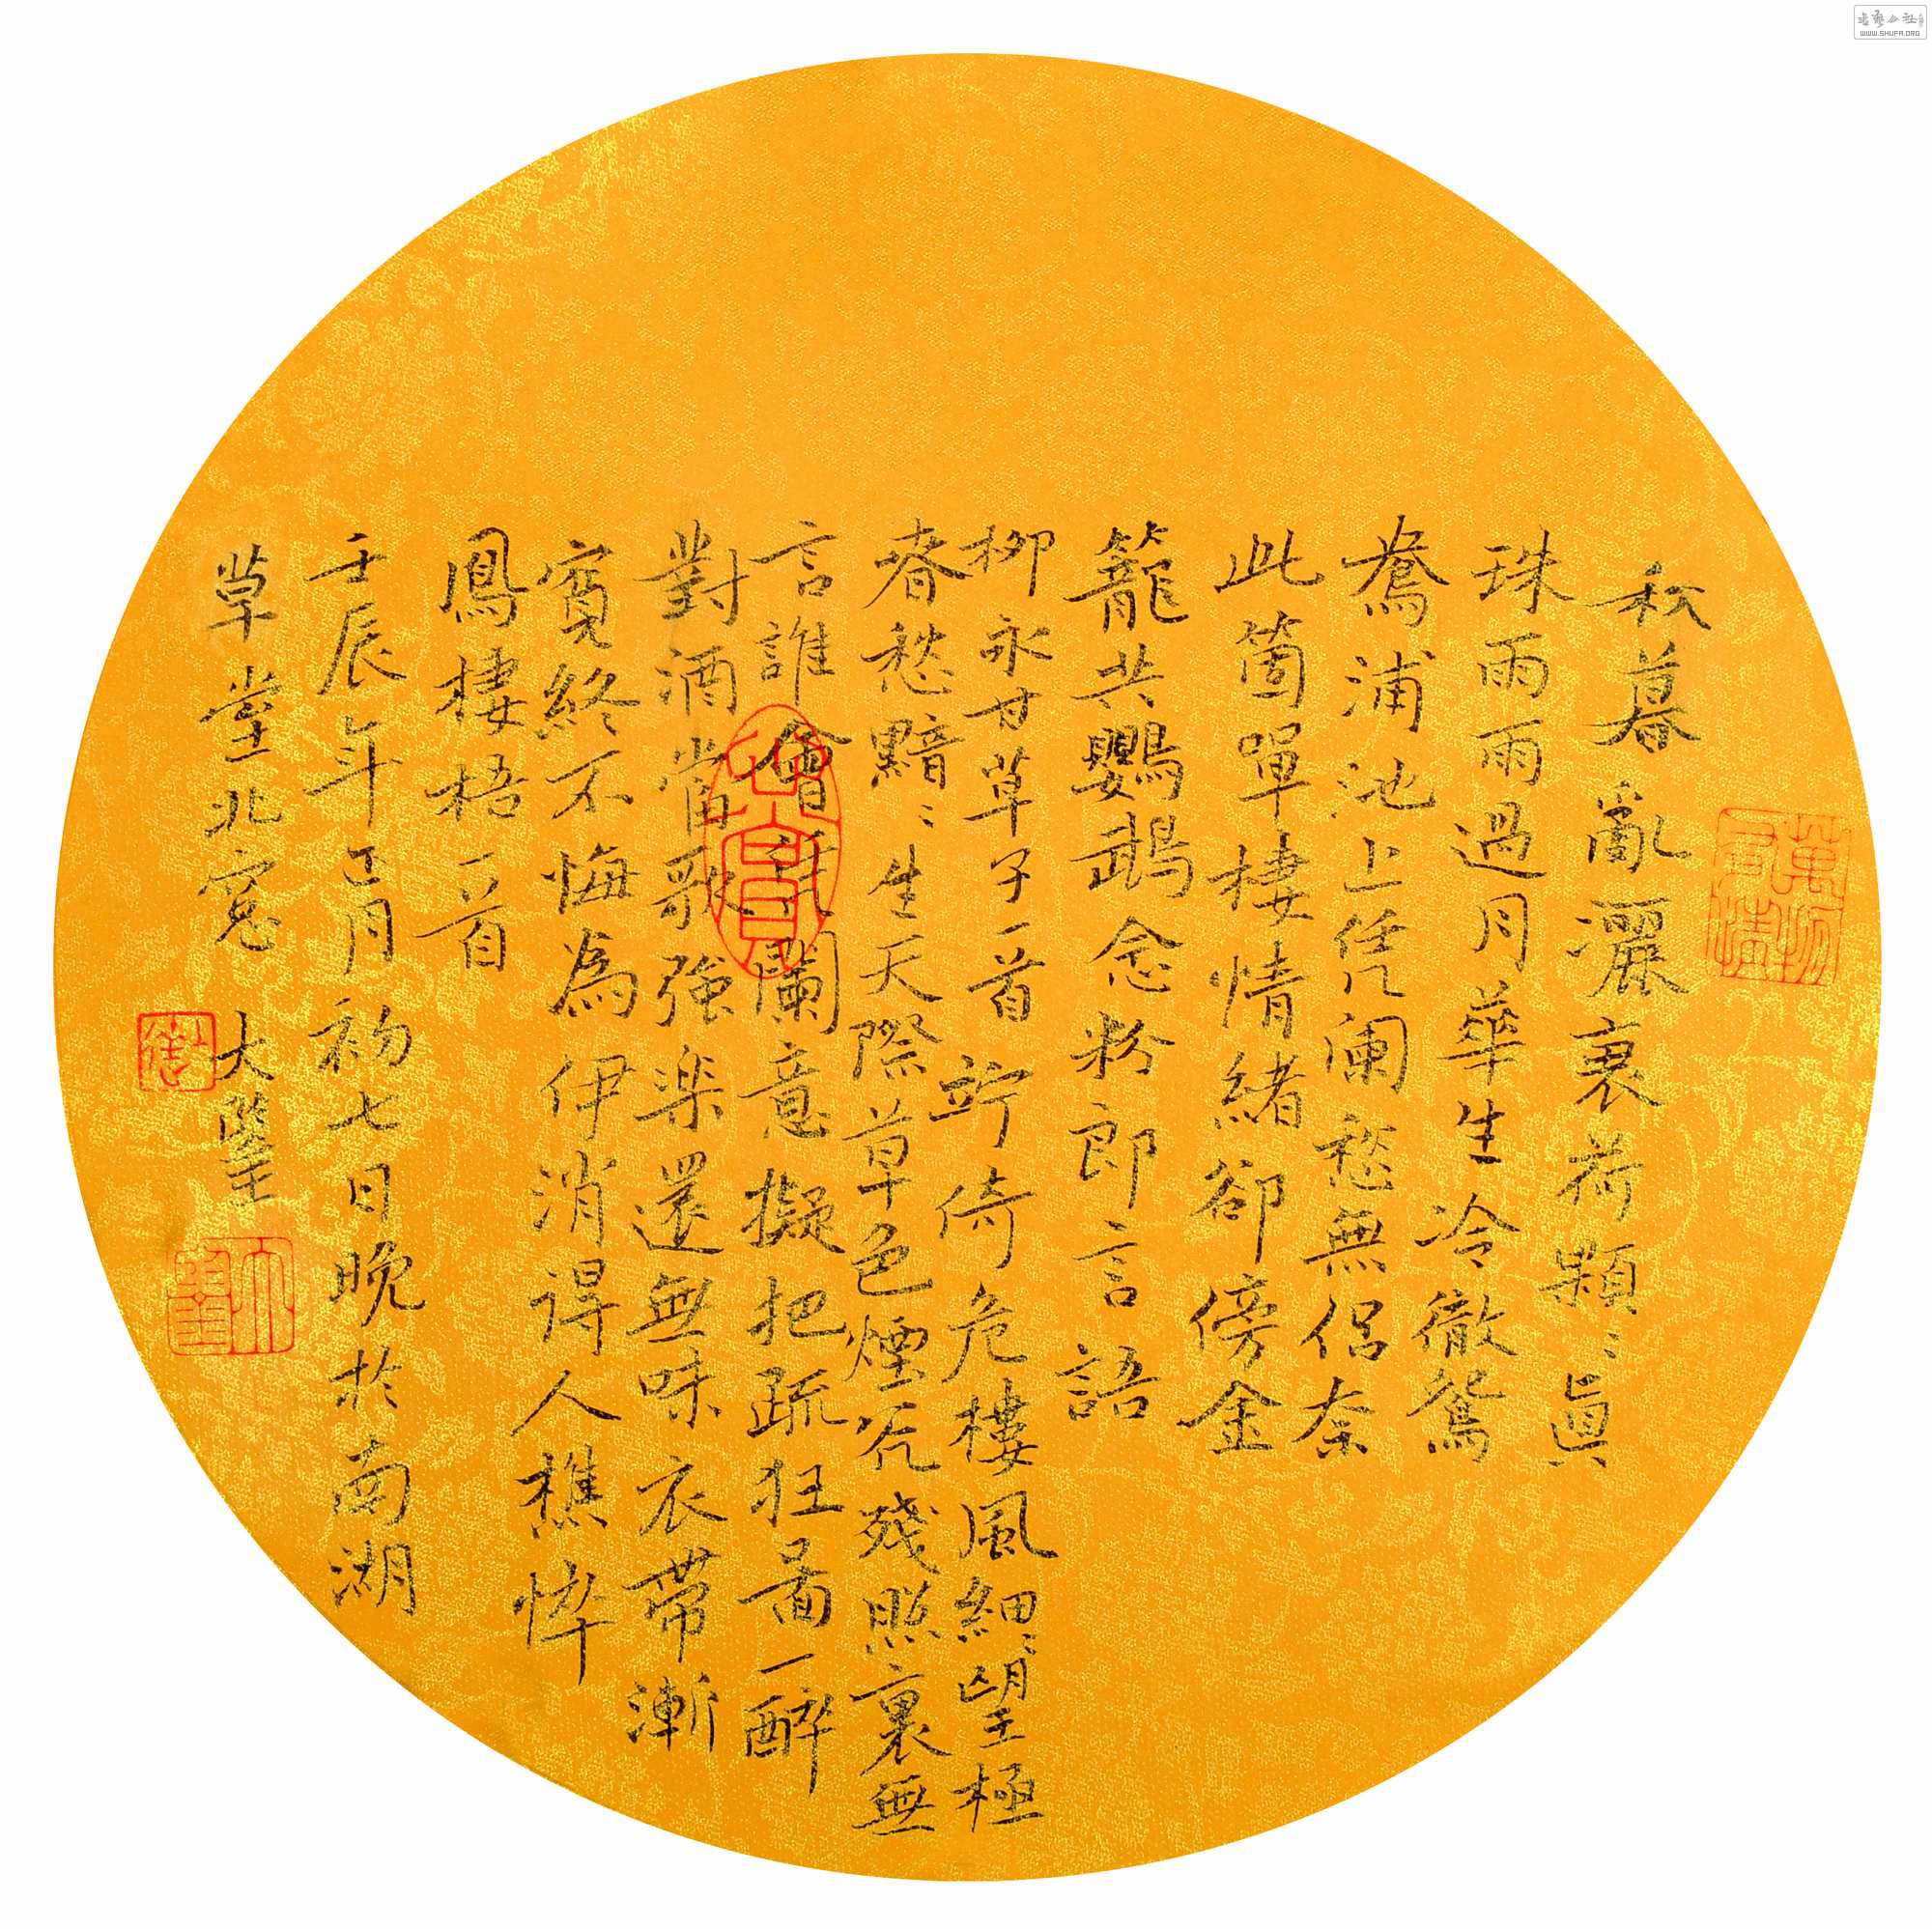 秋暮亂灑衰荷顆〻眞
珠雨雨過月華生冷徹鴛
鴦浦池上凭闌愁無侶柰
此箇單棲情緒卻傍金
籠共鸚鵡念粉郎言語
柳永甘草子一首 竚倚危樓風細〻望極
春愁黯〻生天際草色煙光殘照裏無
言誰會凭闌意擬把疏狂啚一醉
對酒當歌強楽還無味衣帶漸
寬終不悔為伊消得人樵悴
鳳棲梧一首
壬辰年正月初七日晚於南湖
草堂北窓 大
心賞
WWW.SHUFA.ORG